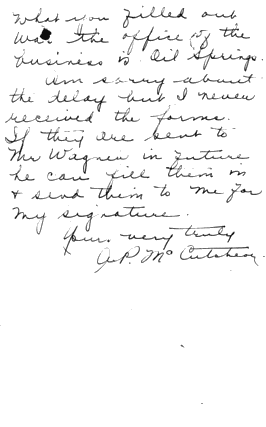 what you filled out
was the office of the
business is Oil Springs.
Am sorry about
the delay but I never
received the forms.
If they are sent to
Mr Wagner in future
he can fill them in
& send them to me for
my signature.
Yours very truly
A.P. McCutcheon